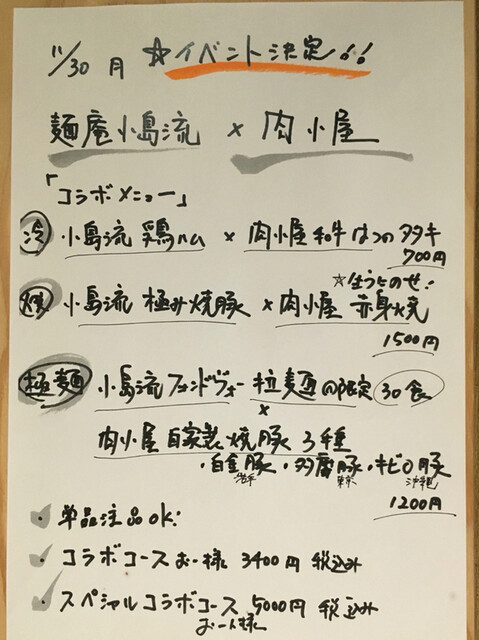 11/30 月 ☆イベント決定!!
麺庵小島流 × 肉小屋
「コラボメニュー」
冷 小島流 鶏ハム × 肉小屋 和牛はつのタタキ
700円
☆生うにのせ!
小島流 極み焼豚 × 肉小屋 赤身焼
1500円
極麺 小島流フォンドヴォー拉麺の限定 30食
×
肉小屋 自家製焼豚 3種
・白金豚 ・多摩豚 ・キビロ豚
岩手 東京 沖縄
1200円
単品注品OK!
コラボコースお一様 3400円 税込み
スペシャルコラボコース 5000円 税込み
お一人様